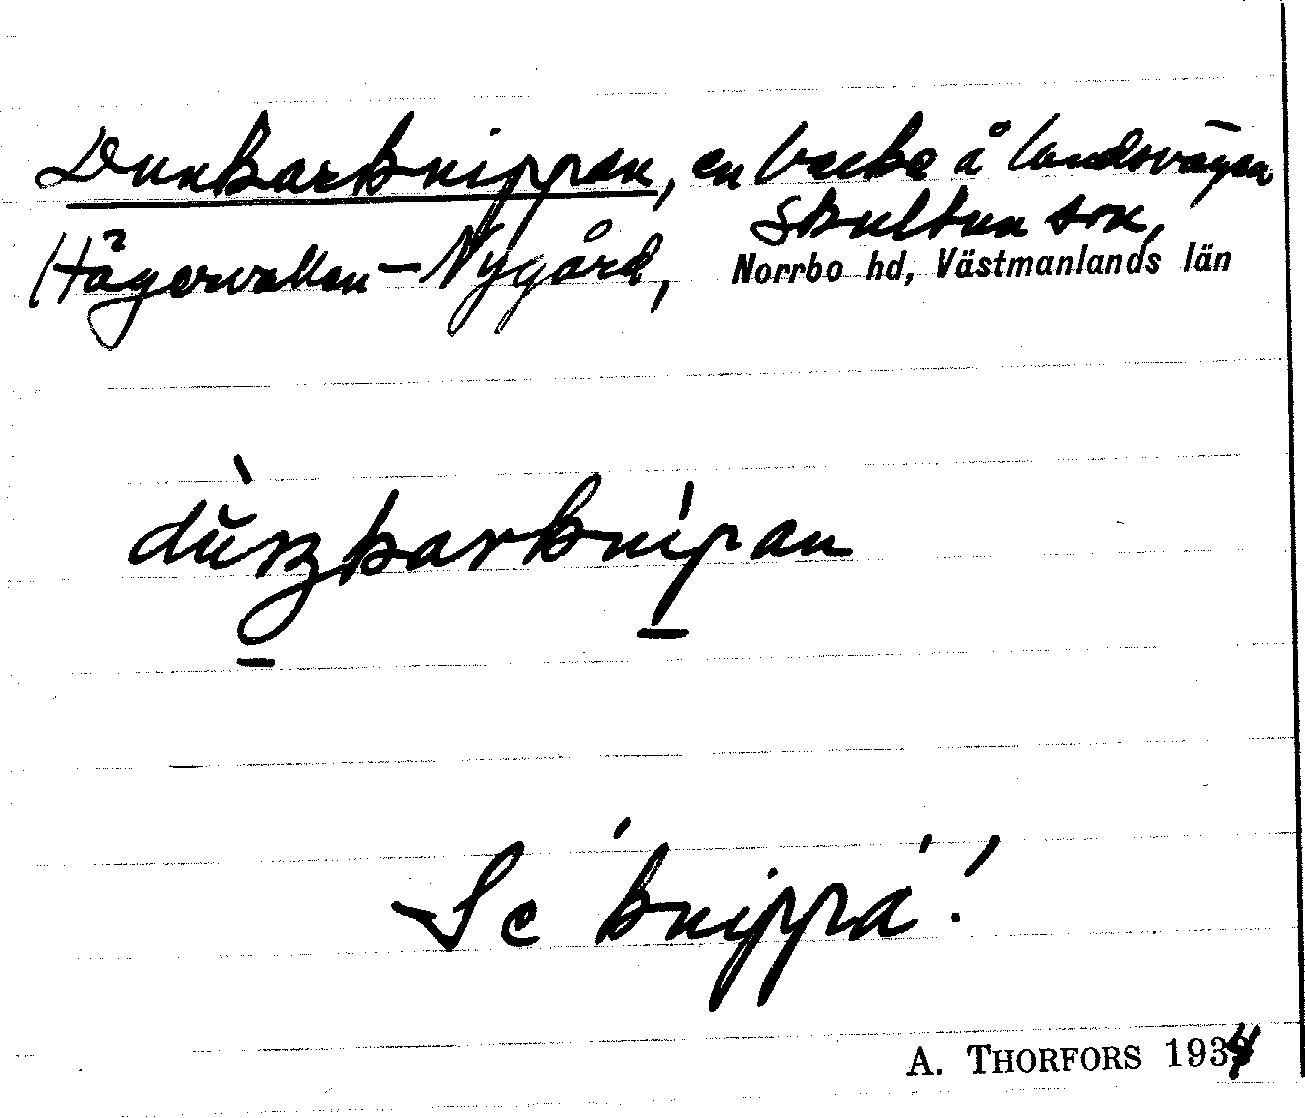 Dunkarknippan, en backe å landsvägen
Hägervallen – Nygård, Skultuna sn,
Norrbo hd, Västmanlands län
Se 'knippa'!
A. THORFORS 1934